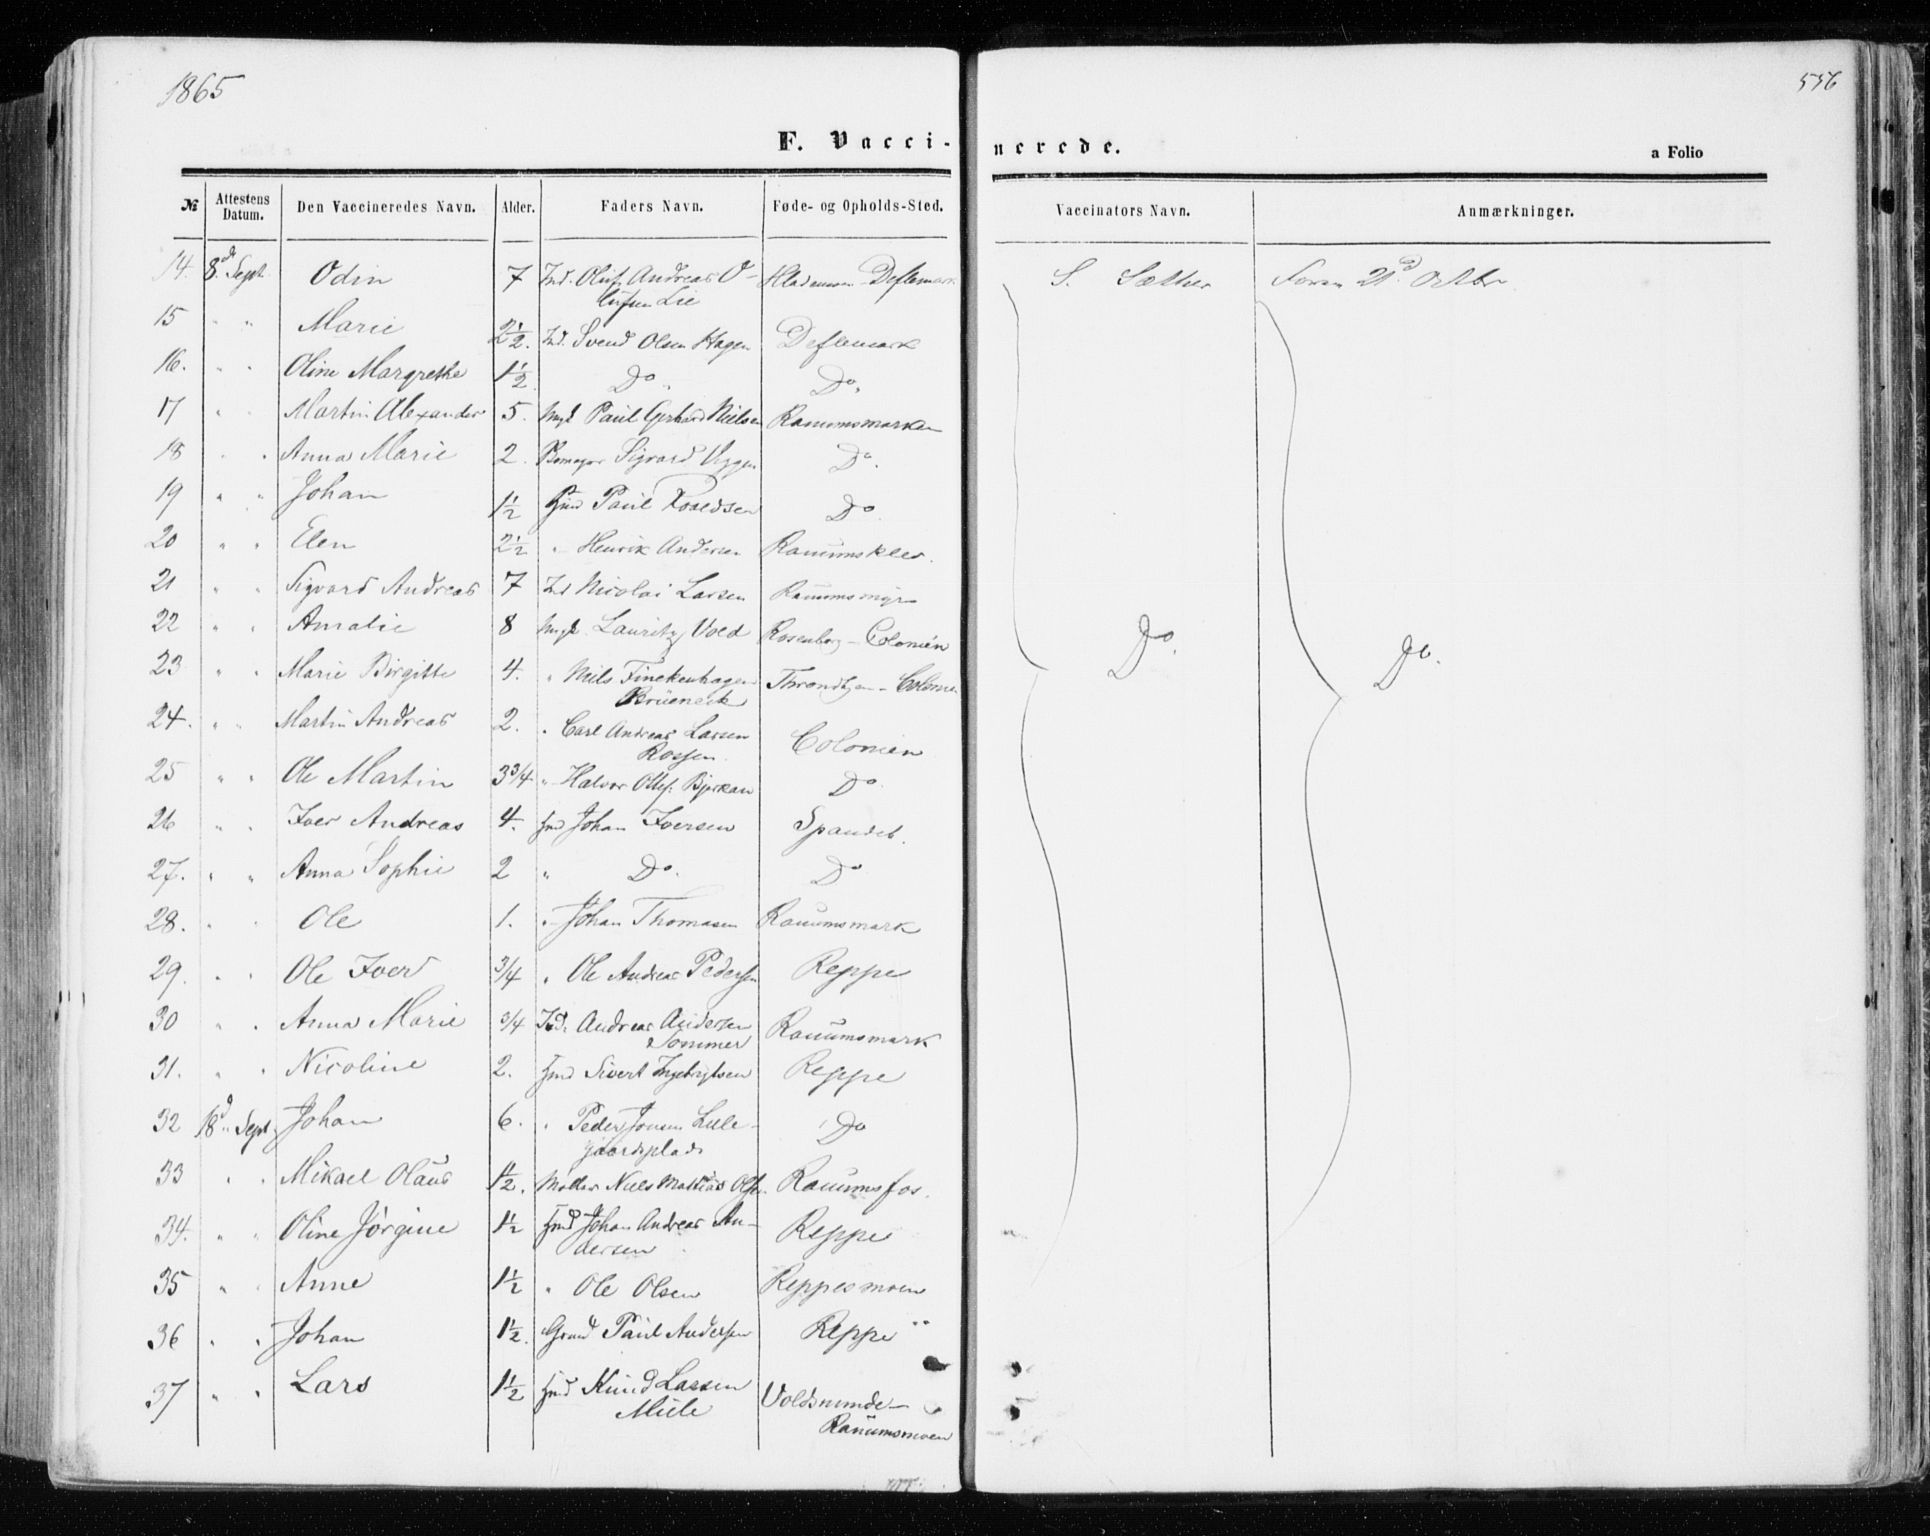 1865
556
F. Vacci-nerede.
a Folio
№ Attestens Datum. Den Vaccineredes Navn. Alder. Faders Navn. Føde- og Opholds-Sted. Vaccinators Navn. Anmærkninger.
14. 8de Sept. Odin 7 Ind. Oluf Andreas O- Hladmoen Deflemark S. Sæther Foran 21d Octbr
lufsen Lie
15 " " Marie 2½. Ind. Svend Olsen Hagen Deflemark
16. " " Oline Margrethe 1½ Do. Do.
17 " " Martin Alexander 5. Mgl Paul Gerhard Nielsen Ranumsmarken
18 " " Anna Marie 2. Sigvard Viggen Do.
19 " " Johan 1½ Hmd Paul Roaldsen Do.
20 " " Elen 2½ " Henrik Andersen Ranumsklev.
21 " " Sigvard Andreas 7 Ind Nicolai Larsen Ranumsmyr
22 " " Amalie 8 Mgl. Lauritz Vold Rosenborg - Colonien Do. Do.
23 " " Marie Birgitte 4. " Niels Finckenhagen Throndhjem - Colonien
Brüeneck
24. " " Martin Andreas 2. " Carl Andreas Larsen Colonien
Rossen.
25 " " Ole Martin 3¾ " Halvor Ottes. Bjørkan Do.
26 " " Iver Andreas 4. Hmd Johan Iversen Spandet.
27. " " Anna Sophie 2 " Do. Do
28. " " Ole 1. " Johan Thomasen Ranumsmark
29. " " Ole Iver ¾ " Ole Andreas Pedersen Reppe
30 " " Anna Marie ¾ Ind. Andreas Andersen Ranumsmark
Sommer
31. " " Nicoline 2. Hmd Sivert Ingebrigtsen Reppe
32 18d Sept. Johan 6. " Peder Jonsen Lille- Do
gaardsplads
33 " " Mikael Olaus 1½. Møller Niels Mathias Ols. Ranumsfos.
34. " " Oline Jørgine 1½ Hmd Johan Andreas An- Reppe
dersen
35 " " Anne 1½ " Ole Olsen Reppesmoen
36 " " Johan 1½. Grmd Paul Andersen Reppe
37 " " Lars 1½ Hmd Knud Larsen Voldsminde-
Miele Ranumsmoen